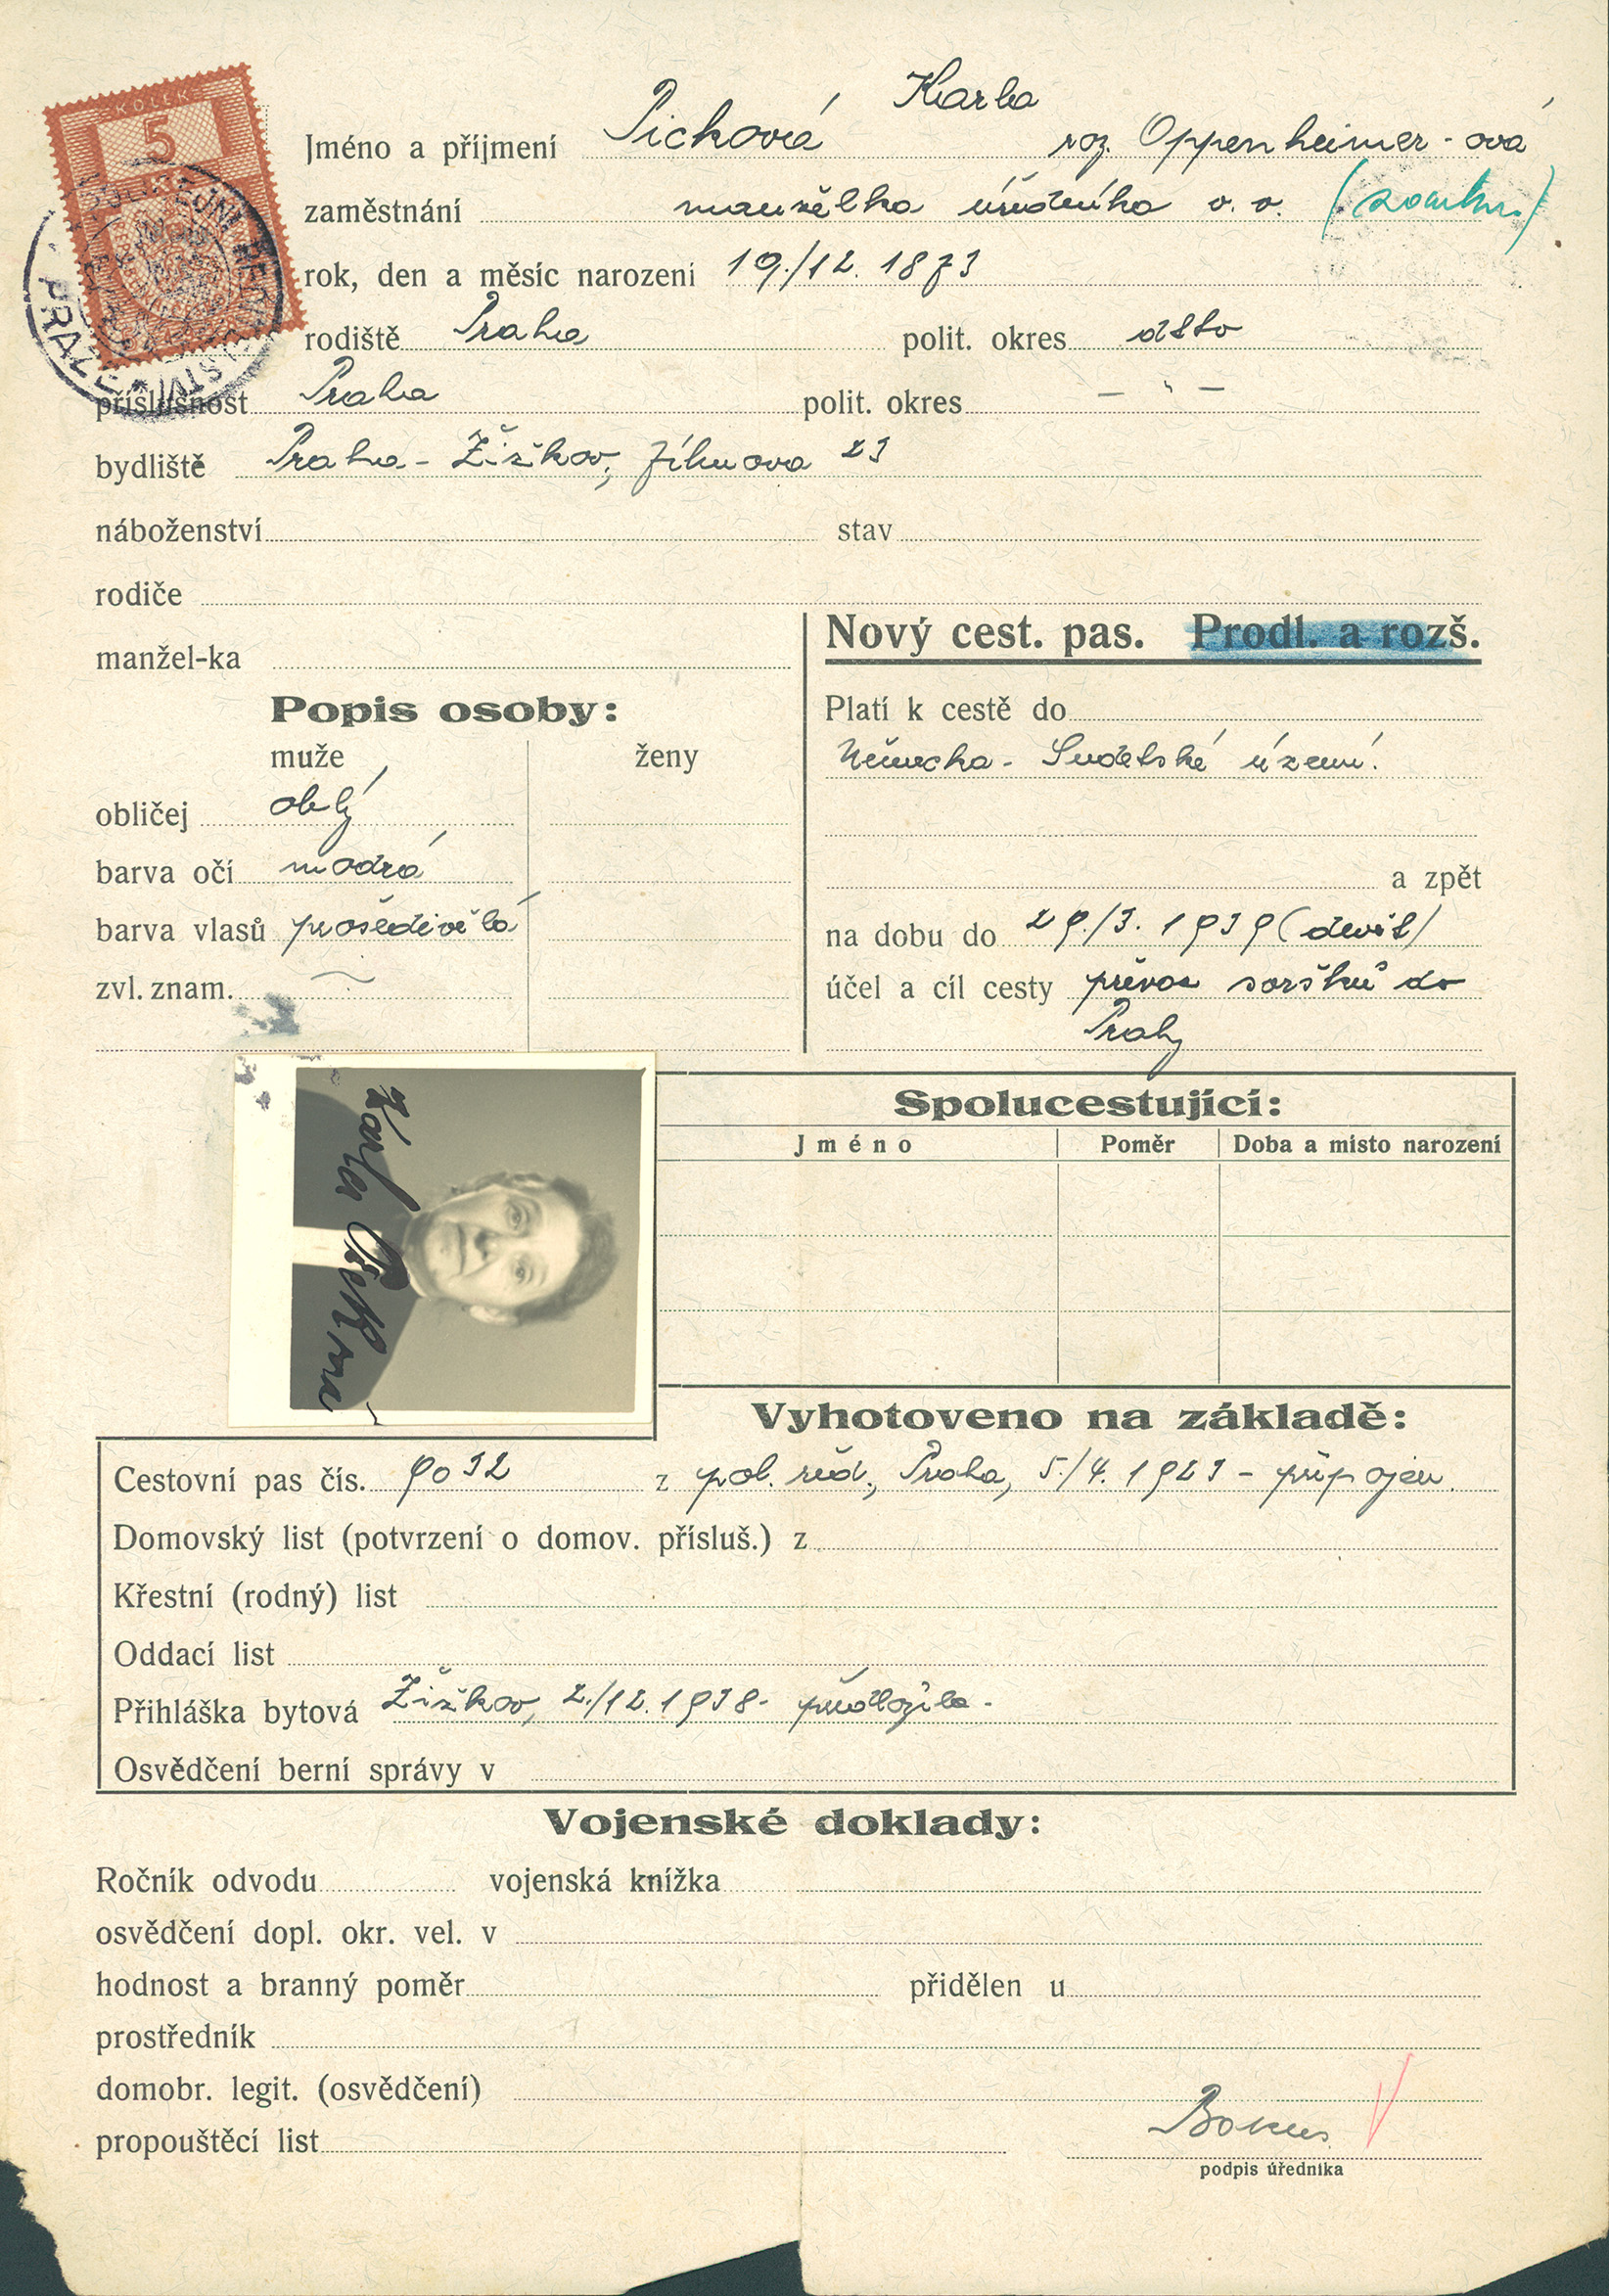 KOLEK
5
PRAZE
Karla
Jméno a příjmení Picková roz. Oppenheimer-ová
zaměstnání manželka úředníka v. v.
rok, den a měsíc narození 19./12. 1873
rodiště Praha polit. okres dtto
příslušnost Praha polit. okres — " —
bydliště Praha - Žižkov, 23
náboženství stav
rodiče
manžel-ka
Nový cest. pas. Prodl. a rozš.
Popis osoby:
muže ženy
obličej oblý
barva očí modrá
barva vlasů prošedivělá
zvl. znam.
Platí k cestě do
Německa - Sudetské území.
a zpět
na dobu do 29./3. 1939
účel a cíl cesty převoz do
Prahy
Karla Picková
Spolucestující:
Jméno Poměr Doba a místo narození
Vyhotoveno na základě:
Cestovní pas čís. 9032 z pol. řed., Praha, 5./4. 1923 - připojen.
Domovský list (potvrzení o domov. přísluš.) z
Křestní (rodný) list
Oddací list
Přihláška bytová Žižkov, 2./12. 1938 - předložila -
Osvědčení berní správy v
Vojenské doklady:
Ročník odvodu vojenská knížka
osvědčení dopl. okr. vel. v
hodnost a branný poměr přidělen u
prostředník
domobr. legit. (osvědčení)
propouštěcí list
podpis úředníka